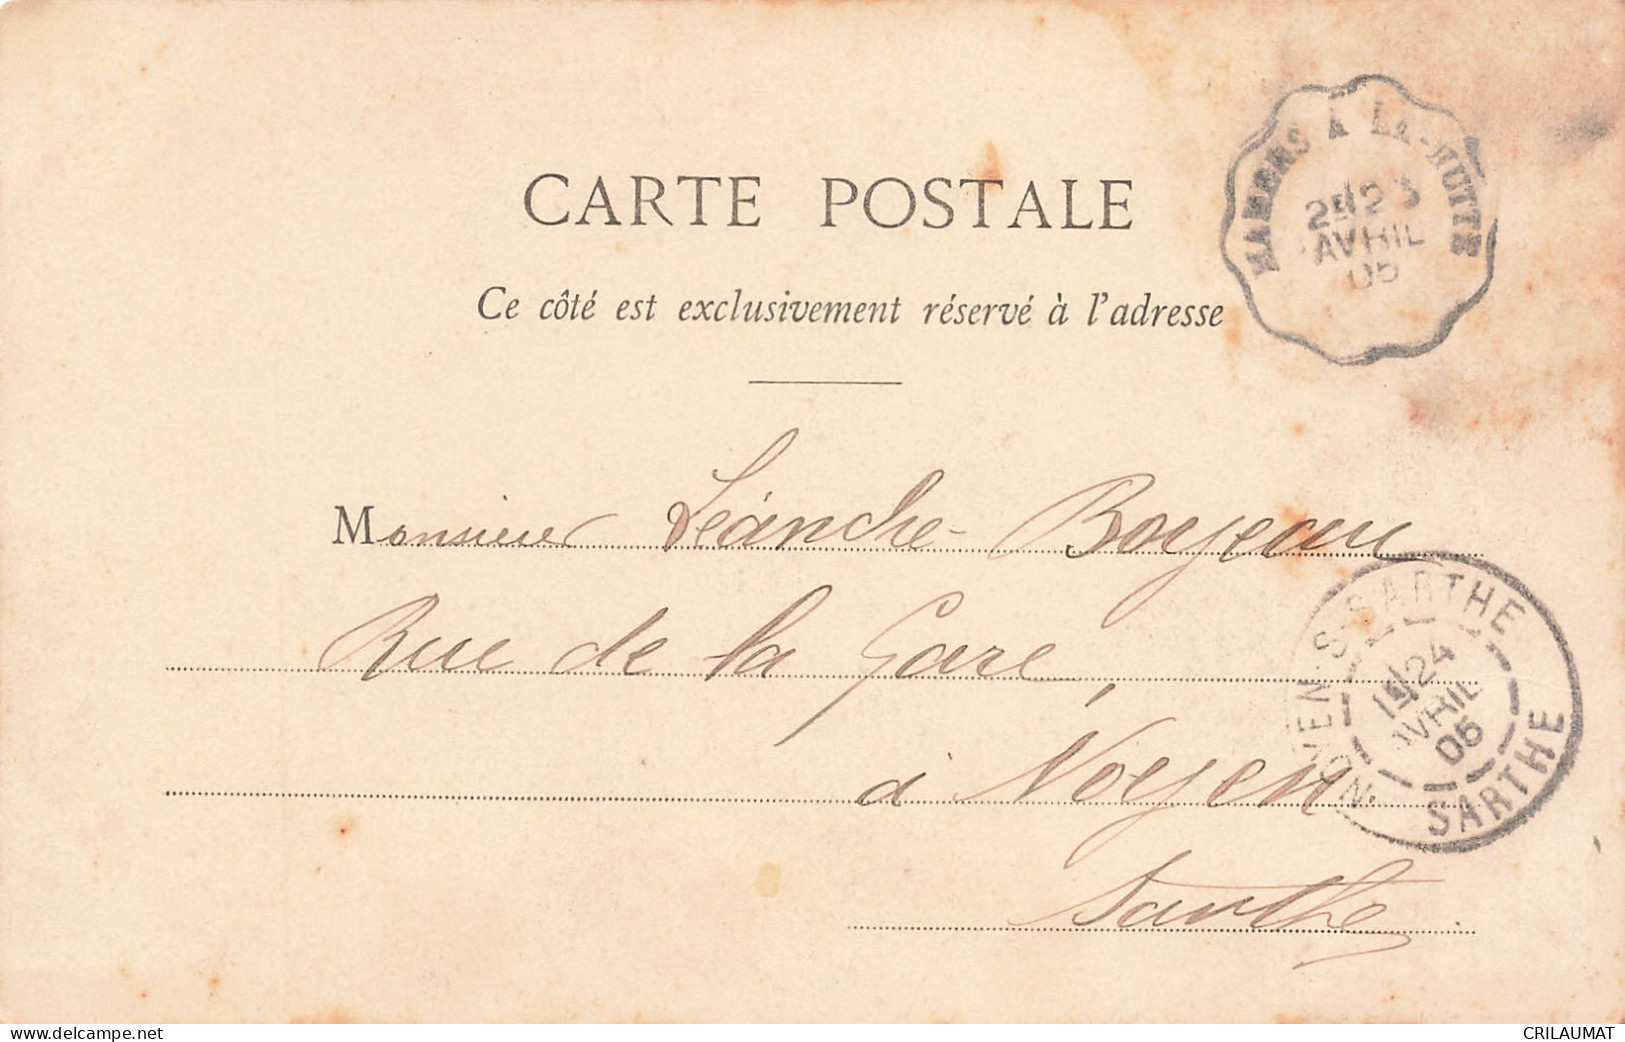 CARTE POSTALE
Ce côté est exclusivement réservé à l'adresse
MAMERS À LA-HUTTE
2E 23
AVRIL
05
Monsieur Léandre Boyeau
Rue de la Gare
à Noyen
Sarthe
NOYEN-S-SARTHE
1E 24
AVRIL
05
SARTHE
www.delcampe.net
CRILAUMAT